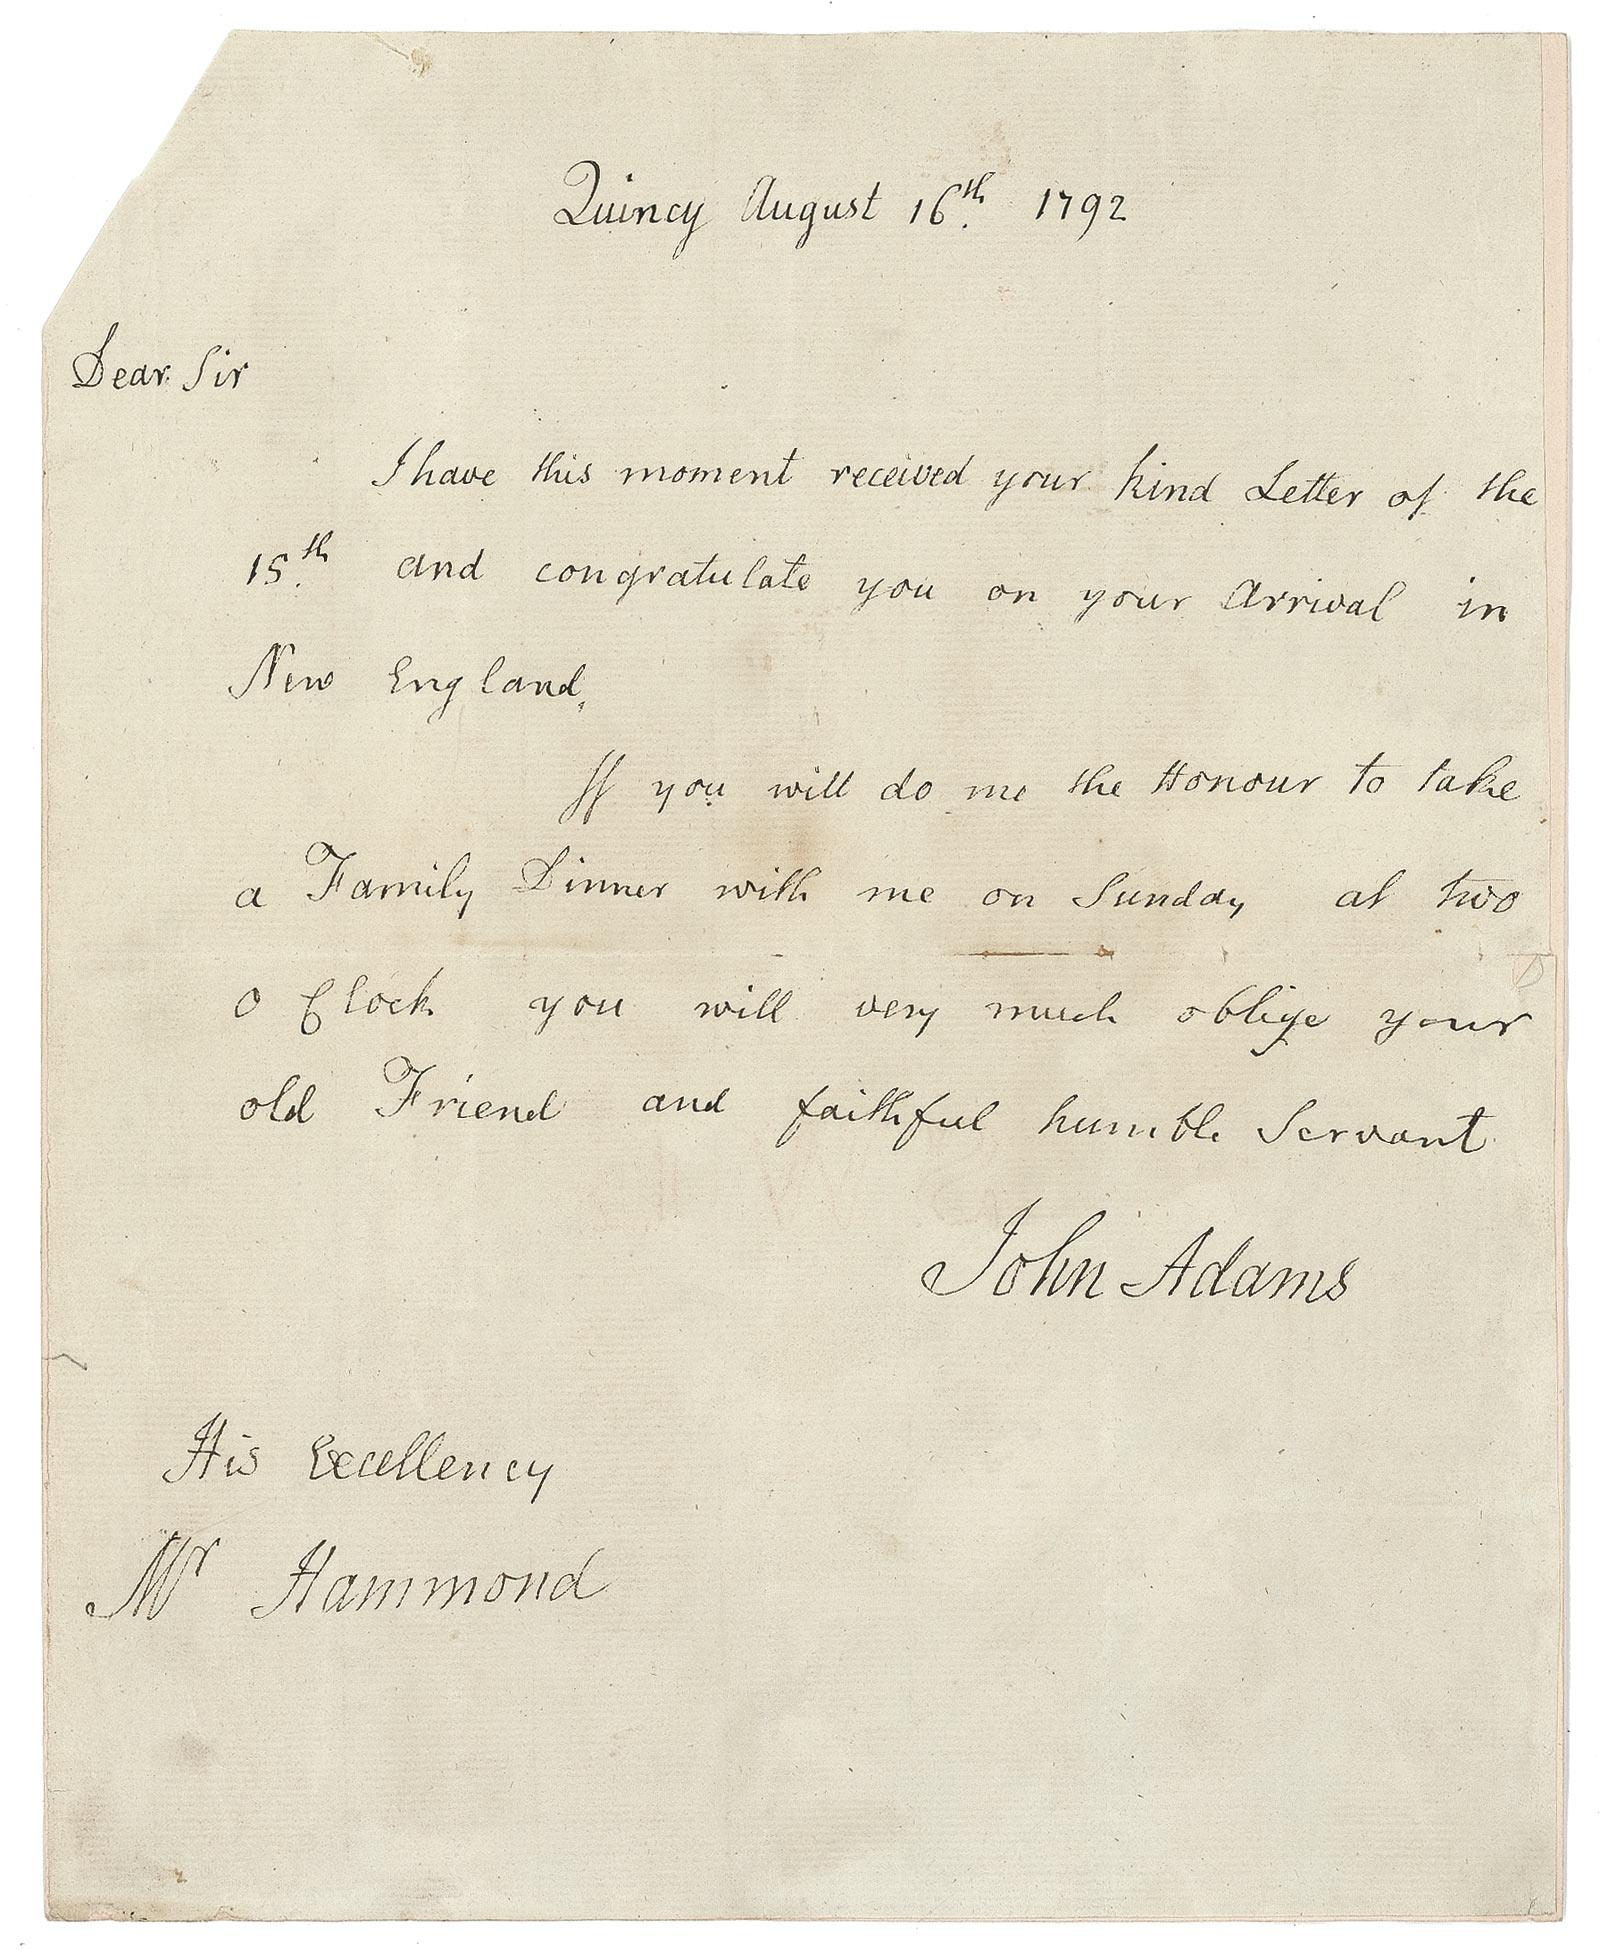 Quincy August 16th. 1792
Dear Sir
I have this moment received your kind Letter of the
15th. and congratulate you on your Arrival in
New England.
If you will do me the Honour to take
a Family Dinner with me on Sunday at two
O Clock you will very much oblige your
old Friend and faithful humble Servant
John Adams
His Excellency
Mr Hammond